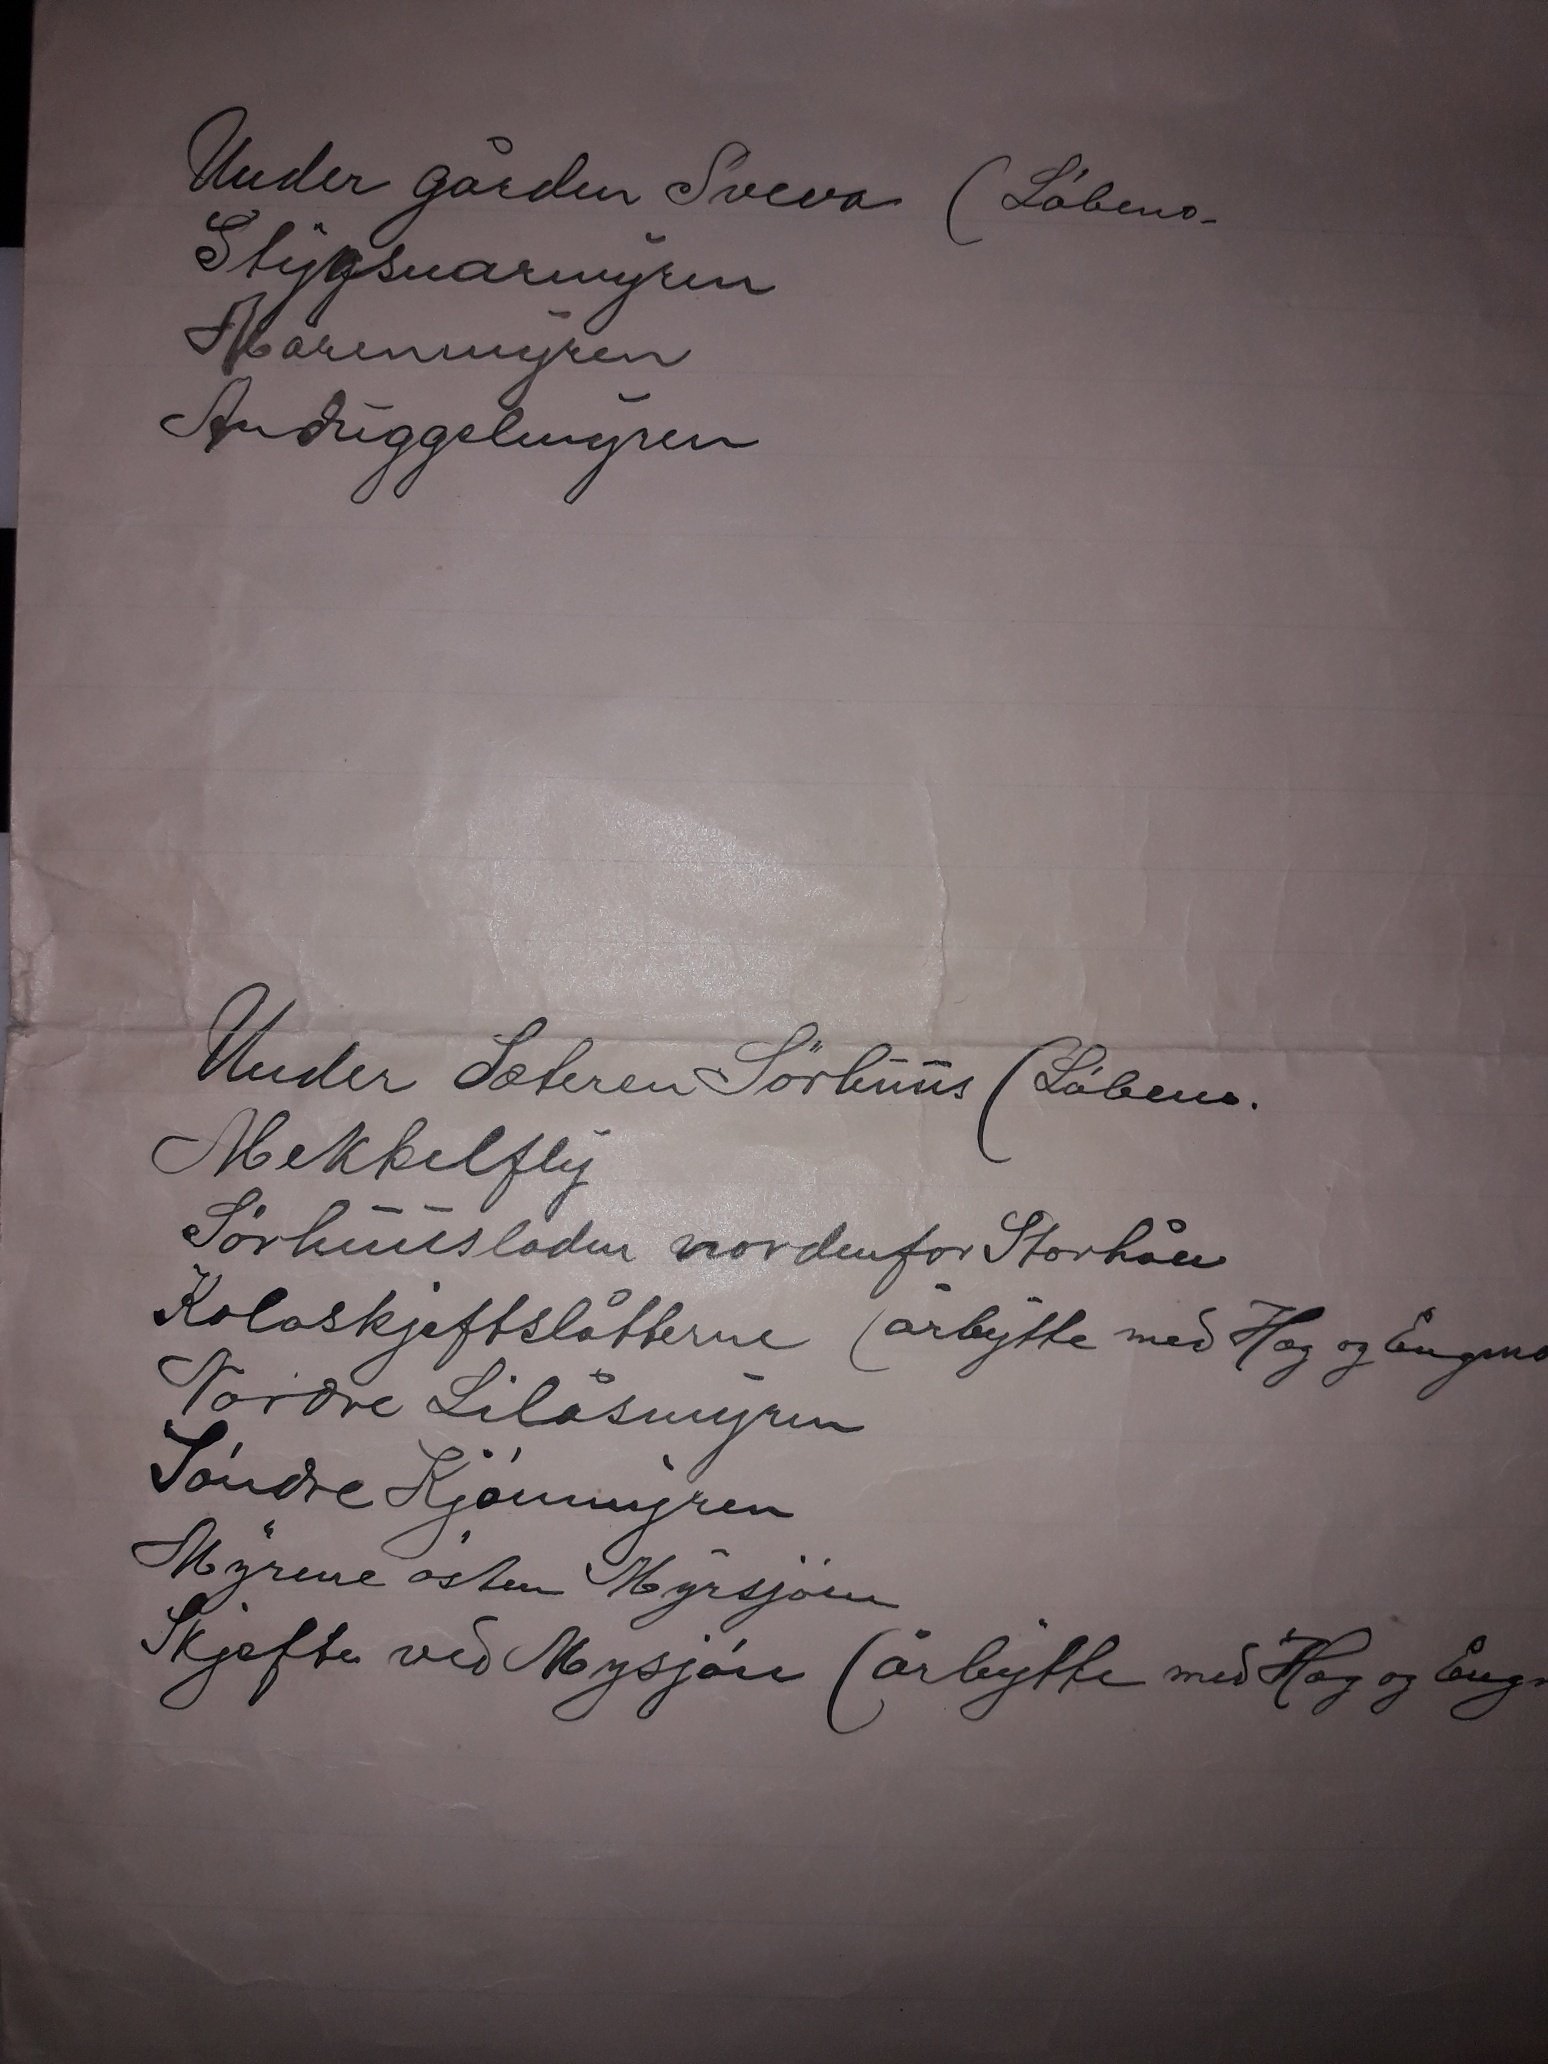 Under gården Sveva (Löbeno.
Stygsnarmyren
Marenmyren
Andruggelmyren
Under Sæteren Sörhuus (Löbeno.
Mekkelfly
Sörhuusladen nordenfor Storhåen
Kolaskjeftslåtterne (årbytte med Hag og Engmo
Nordre Lilåsmyren
Söndre Kjönnmyren
Myrene östen Myrsjöen
Skjefte ved Mysjöen (årbytte med Hag og Eng